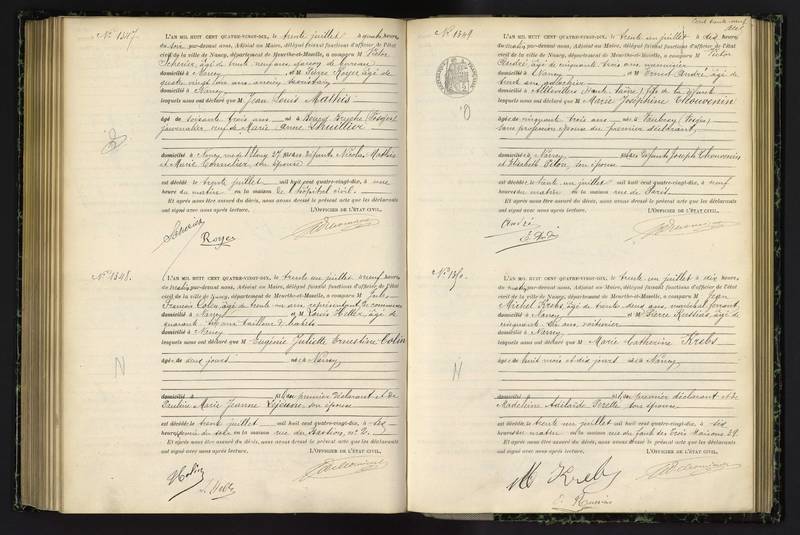 N° 1347.
L'AN MIL HUIT CENT QUATRE-VINGT-DIX, le trente juillet à quatre heures
du soir par-devant nous, Adjoint au Maire, délégué faisant fonctions d'officier de l'état
civil de la ville de Nancy, département de Meurthe-et-Moselle, a comparu M Victor
Scherier, âgé de trente neuf ans, garçon de bureau
domicilié à Nancy et M Royer âgé de
quatre vingt un ans ancien
domicilié à Nancy
lesquels nous ont déclaré que M Jean Louis Mathis
âgé de soixante trois ans né à Bourg Bruche (Vosges)
journalier veuf de Marie Anne
domicilié à Nancy, rue 27 fils des défunts Nicolas Mathis
et Marie son épouse
est décédé le trente juillet mil huit cent quatre-vingt-dix, à une
heure du matin en la maison de l'hôpital civil.
Et après nous être assuré du décès, nous avons dressé le présent acte que les déclarants
ont signé avec nous après lecture. L'OFFICIER DE L'ÉTAT CIVIL,
Royer
N° 1348.
L'AN MIL HUIT CENT QUATRE-VINGT-DIX, le trente un juillet à neuf heures
du matin par-devant nous, Adjoint au Maire, délégué faisant fonctions d'officier de l'état
civil de la ville de Nancy, département de Meurthe-et-Moselle, a comparu M Jules
François Colin, âgé de trente un ans, représentant de commerce
domicilié à Nancy et M Louis âgé de
quarante ans tailleur d'habits
domicilié à Nancy
lesquels nous ont déclaré que M Eugénie Juliette Ernestine Colin
âgé de deux jours née à Nancy
N
domicilié à fille du premier déclarant et de
Pauline Marie Jeanne Lejeune, son épouse
est décédée le trente juillet mil huit cent quatre-vingt-dix, à six
heures du soir en la maison rue du Bastion, n° 2.
Et après nous être assuré du décès, nous avons dressé le présent acte que les déclarants
ont signé avec nous après lecture. L'OFFICIER DE L'ÉTAT CIVIL,
N° 1349
L'AN MIL HUIT CENT QUATRE-VINGT-DIX, le trente un juillet à dix heures
du matin par-devant nous, Adjoint au Maire, délégué faisant fonctions d'officier de l'état
civil de la ville de Nancy, département de Meurthe-et-Moselle, a comparu M Victor
André, âgé de cinquante trois ans, menuisier
domicilié à Nancy et M Ernest André âgé de
trente ans
domicilié à (Haute Saône) fils de la défunte
lesquels nous ont déclaré que M Marie Joséphine Thouvenin
âgée de cinquante trois ans née à (Vosges)
sans profession épouse du premier déclarant,
domiciliée à Nancy fille des défunts Joseph Thouvenin
et Elisabeth son épouse
est décédée le trente un juillet mil huit cent quatre-vingt-dix, à neuf
heures du matin en la maison rue de Paris.
Et après nous être assuré du décès, nous avons dressé le présent acte que les déclarants
ont signé avec nous après lecture. L'OFFICIER DE L'ÉTAT CIVIL,
André
N° 1350.
L'AN MIL HUIT CENT QUATRE-VINGT-DIX, le trente un juillet à dix heures
du matin par-devant nous, Adjoint au Maire, délégué faisant fonctions d'officier de l'état
civil de la ville de Nancy, département de Meurthe-et-Moselle, a comparu M Jean
Michel Krebs, âgé de trente deux ans, maréchal ferrant
domicilié à Nancy et M Pierre âgé de
cinquante ans, voiturier
domicilié à Nancy
lesquels nous ont déclaré que M Marie Catherine Krebs
âgée de huit mois et dix jours née à Nancy
N
domicilié à fille du premier déclarant et de
Madeleine Adélaïde son épouse
est décédée le trente un juillet mil huit cent quatre-vingt-dix, à six
heures du matin en la maison rue du faub. des Trois Maisons 39.
Et après nous être assuré du décès, nous avons dressé le présent acte que les déclarants
ont signé avec nous après lecture. L'OFFICIER DE L'ÉTAT CIVIL,
M Krebs